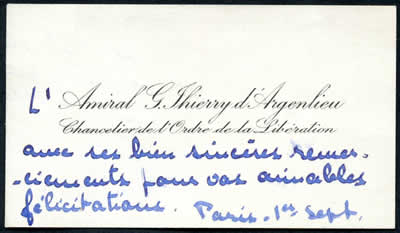 L' Amiral G. Thierry d'Argenlieu
Chancelier de l'Ordre de la Libération
avec ses bien sincères remer-
-ciements pour vos aimables
félicitations. Paris - 1er Sept.